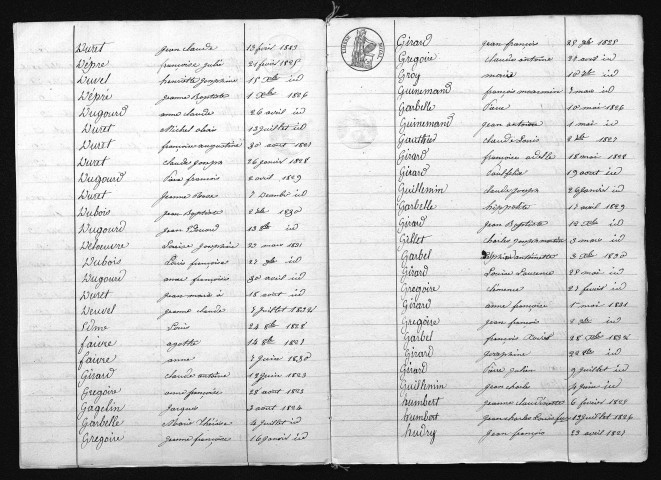 Duret jean claude 13 fvril 1823
Dépré françoise julie 21 fvrier 1825
Duvel henriette josephine 15 id
Dépré jeanne Baptiste 1 Xbre 1826
Dugourd anne claude 26 avril id
Duret Michel alexis 13 juillet id
Duret françois augustine 30 aout 1827
Duret claude joseph 26 janvier 1828
Dugourd Pierre françois 2 avril 1829
Duret jeanne 7 Decembre id
Dubois jean Baptiste 2 1830
Dugourd jean 13 id
Deloeuvre Louise josephine 27 mars 1831
Dubois Louis françoise 27 id
Dugourd anne françoise 30 avril id
Duret jeanne marie 18 aout id
Deuvel jeanne claude 7 juillet 1832
Edme Louis 24 1828
faivre agathe 14 1827
faivre anne 7 juin 1830
Girard claude antoine 18 juin 1823
Gregoire anne françoise 28 aout 1823
Gagelin jacques 3 aout 1824
Garbelle Marie thérèse 4 juillet id
Gregoire jeanne françoise 16 janvier id
Girard jean françois 29 1825
Gregoire claude antoine 21 avril id
Groy marie 10 id
Guinemand françois 3 mars id
Garbelle Pierre 10 mai 1826
Guinemand jean antoine 1 mai id
Gauthier claude Louis 2 1827
Girard françoise adelle 18 mai 1828
Girard 19 aout id
Guillemin claude joseph 26 janvier id
Garbelle hippolite 17 avril 1829
Girard jean Baptiste 12 Xbre id
Gillet charles joseph 3 mars id
Garbel antoinette 3 Xbre 1830
Girard Louise Laurence 28 mai id
Gregoire clémence 27 fvrier id
Girard anne françoise 1 mai 1831
Gregoire jean françois 2 id
Garbel françois Xavier 28 Xbre 1832
Girard josephine 22 id
Girard Pierre julien 9 juillet id
Guillemin jean charles 4 juin id
humbert jeanne claude 6 fvrier 1823
humbert jean charles 13 juillet 1824
hudry jean françois 23 avril 1827